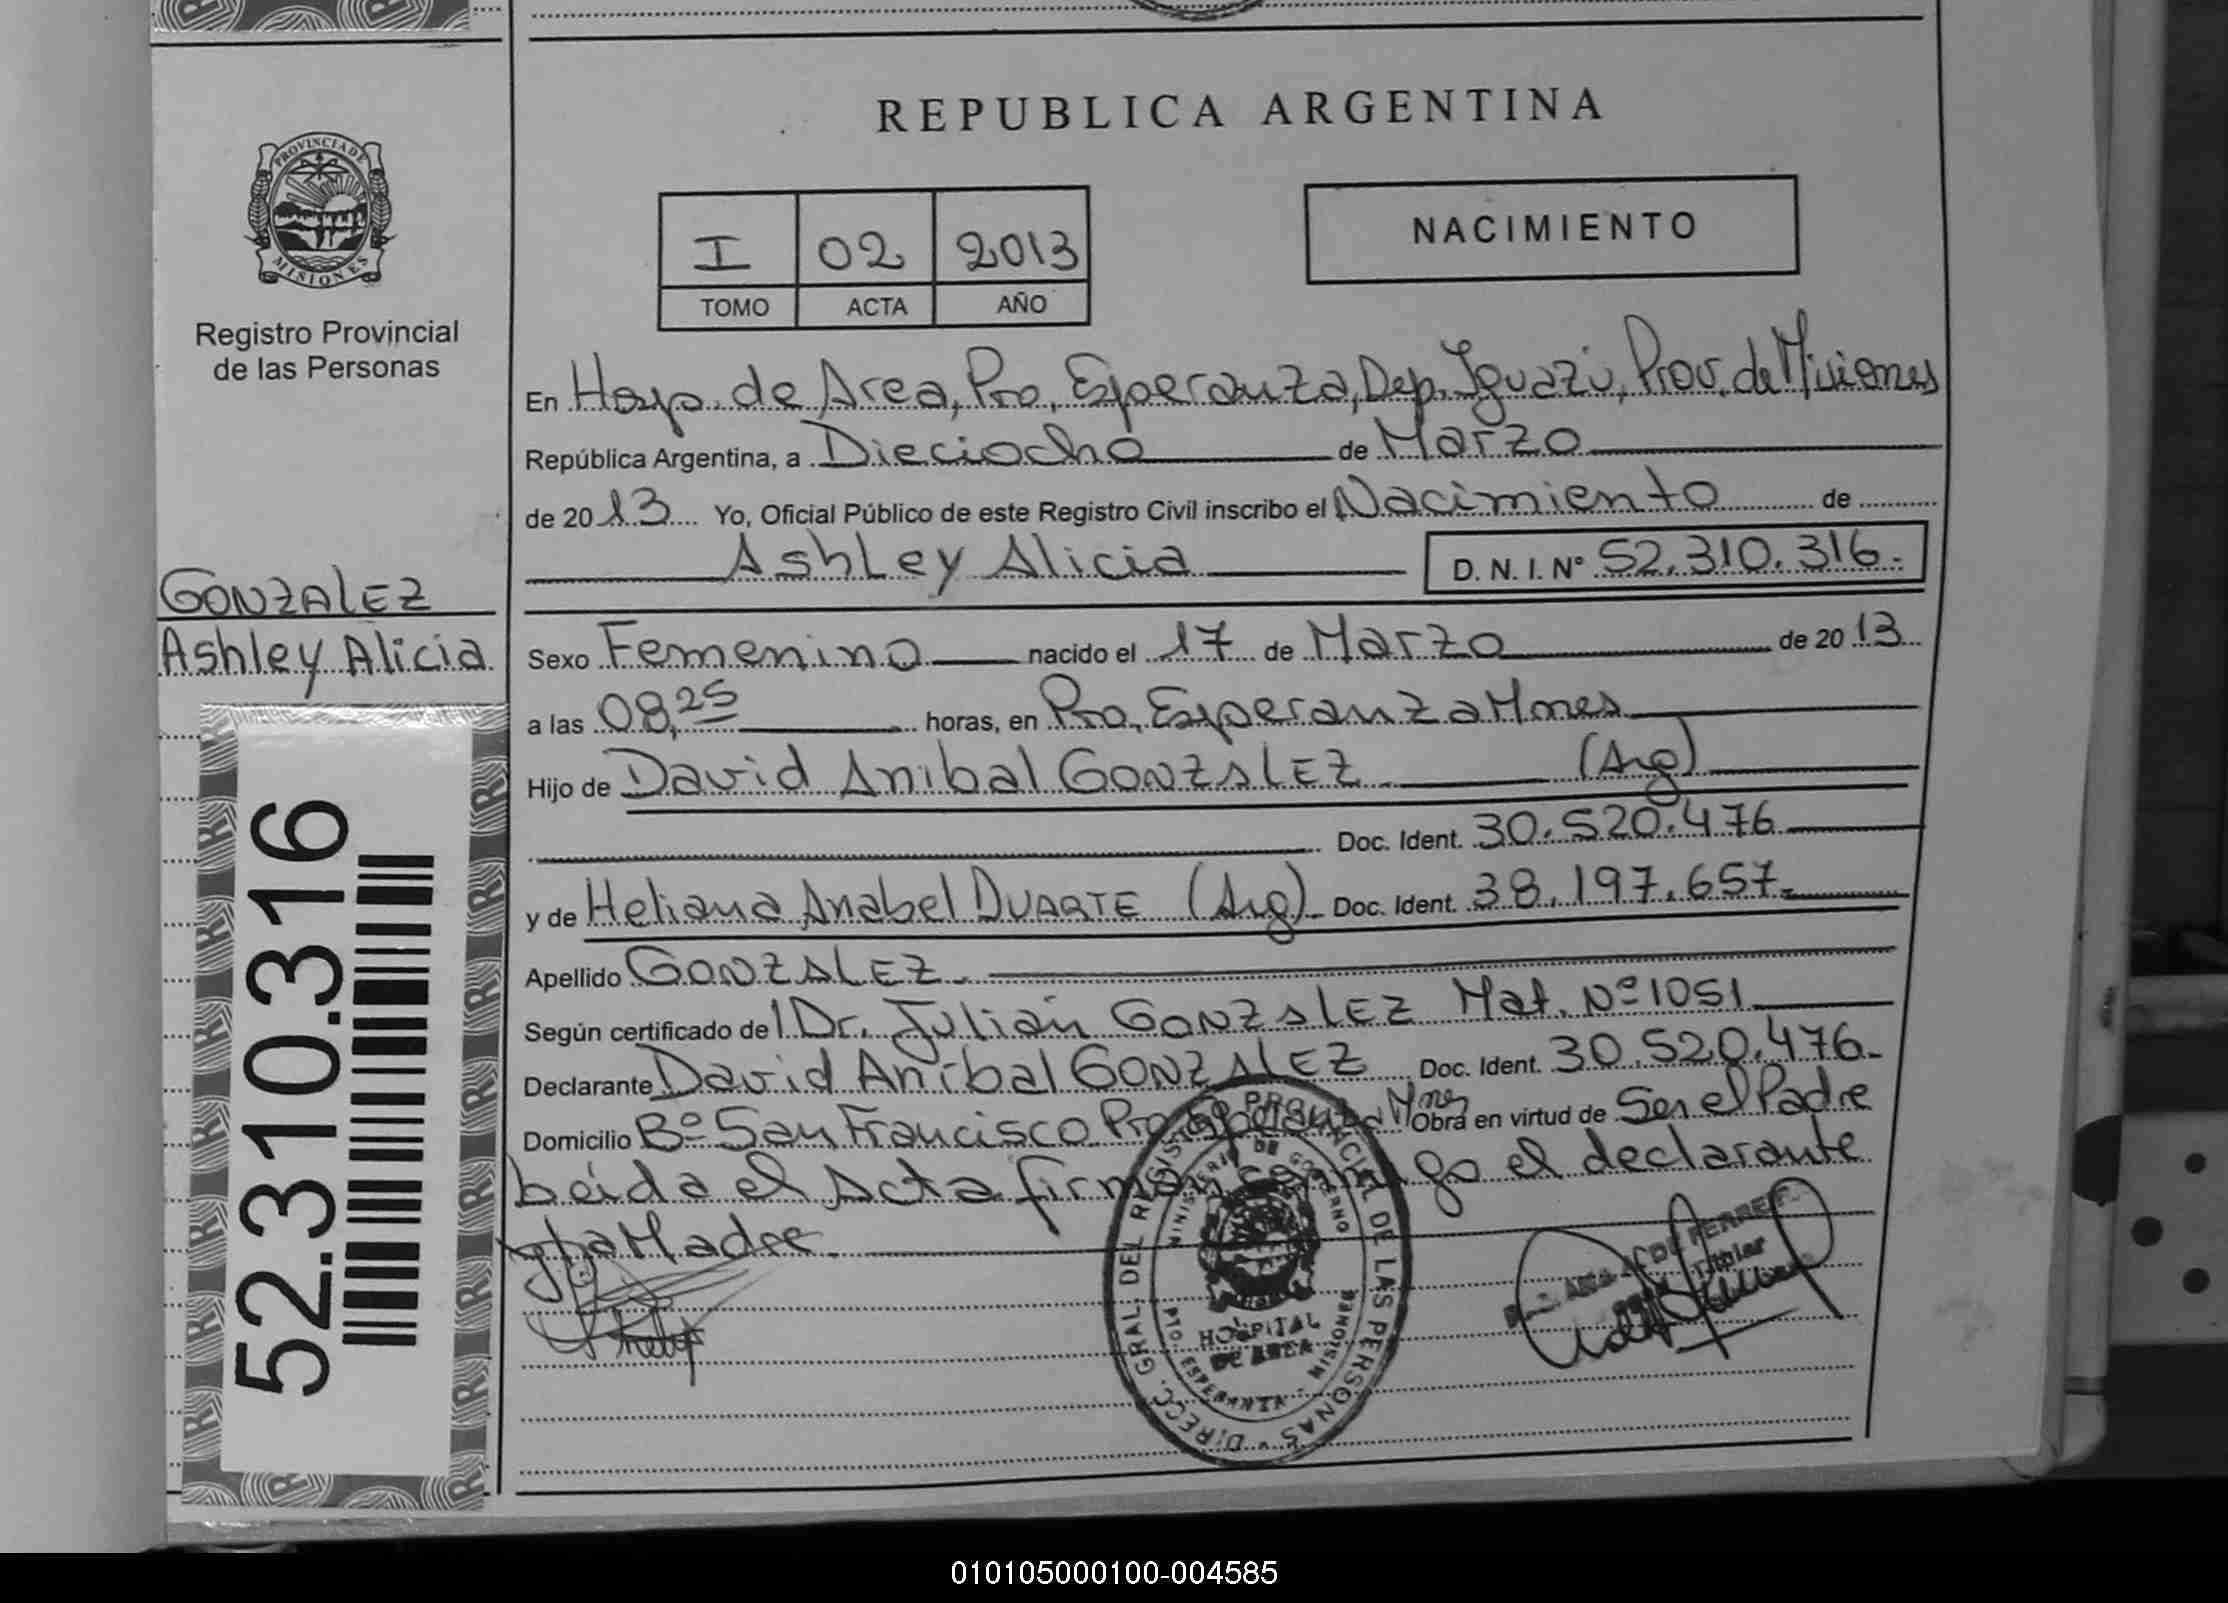 REPUBLICA ARGENTINA
PROVINCIA DE MISIONES
Registro Provincial
de las Personas
NACIMIENTO
I 02 2013
TOMO ACTA AÑO
En Hosp. de Area, Pto. Esperanza, Dep. Iguazú, Prov. de Misiones
República Argentina, a Dieciocho de Marzo
de 2013 Yo, Oficial Público de este Registro Civil inscribo el Nacimiento de
Ashley Alicia D. N. I. N° 52.310.316.-
GONZALEZ
Ashley Alicia
Sexo Femenino nacido el 17 de Marzo de 2013
a las 08,25 horas, en Pto. Esperanza Mnes
Hijo de David Anibal GONZALEZ (Arg)
Doc. Ident. 30.520.476
y de Heliana Anabel DUARTE (Arg). Doc. Ident. 38.197.657.-
Apellido GONZALEZ.
Según certificado del Dr. Julián GONZALEZ Mat. Nº 1051
Declarante David Anibal GONZALEZ Doc. Ident. 30.520.476.-
Domicilio Bº San Francisco Pto. Esperanza Mnes Obra en virtud de Ser el Padre
Leída el Acta firman conmigo el declarante
y la Madre.
52.310.316
DIRECC. GRAL. DEL REGISTRO PROVINCIAL DE LAS PERSONAS
MINISTERIO DE GOBIERNO
HOSPITAL
DE AREA
PTO ESPERANZA - MISIONES
Titular
010105000100-004585